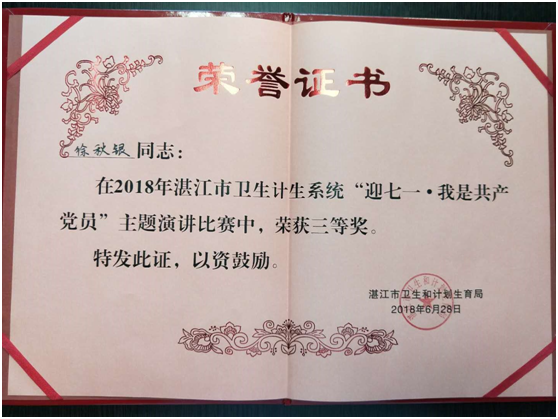 荣誉证书
徐秋银同志：
在2018年湛江市卫生计生系统“迎七一·我是共产
党员”主题演讲比赛中，荣获三等奖。
特发此证，以资鼓励。
湛江市卫生和计划生育局
2018年6月28日